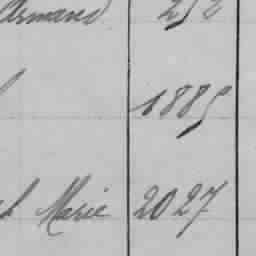 Armand
1885
Marie 2027